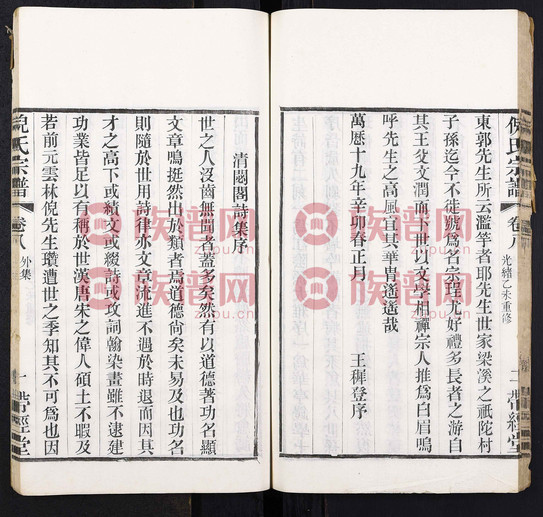 倪氏宗譜
卷八
光緒乙未重修
二
帶經堂
東郭先生所云濫竽者耶先生世家梁溪之祇陀村
子孫迄今不徙號爲名宗珵尤好禮多長者之游自
其王父文潤而下世以文學相禪宗人推爲白眉嗚
呼先生之高風宜其華胄遙遙哉
萬曆十九年辛卯春正月
王穉登序
清閟閣詩集序
世之人沒齒無聞者蓋多矣然有以道德著功名顯
文章鳴挺然出於類者焉道德尙矣未易及也功名
則隨於世用詩律亦文章流進不遇於時退而因其
才之高下或績文或綴詩或攻詞翰染畫雖不逮建
功業皆足以有稱於世漢唐宋之偉人碩士不暇及
若前元雲林倪先生瓚遭世之季知其不可爲也因
倪氏宗譜
卷八
外集
一
帶經堂
族譜网
族譜网
族譜网
族譜网